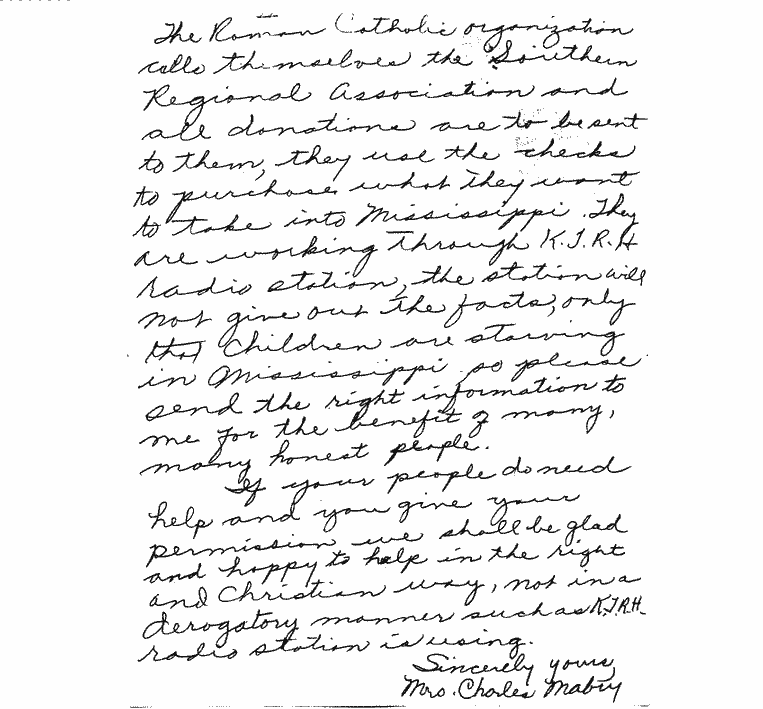 The Roman Catholic organization
calls themselves the Southern
Regional Association and
all donations are to be sent
to them, they use the checks
to purchase what they want
to take into Mississippi. They
are working through K.T.R.H
radio station, the station will
not give out the facts, only
that Children are starving
in Mississippi so please
send the right information to
me for the benefit of many,
many honest people.
If your people do need
help and you give your
permission we shall be glad
and happy to help in the right
and Christian way, not in a
derogatory manner such as K.T.R.H.
radio station is using.
Sincerely yours,
Mrs. Charles Mabry